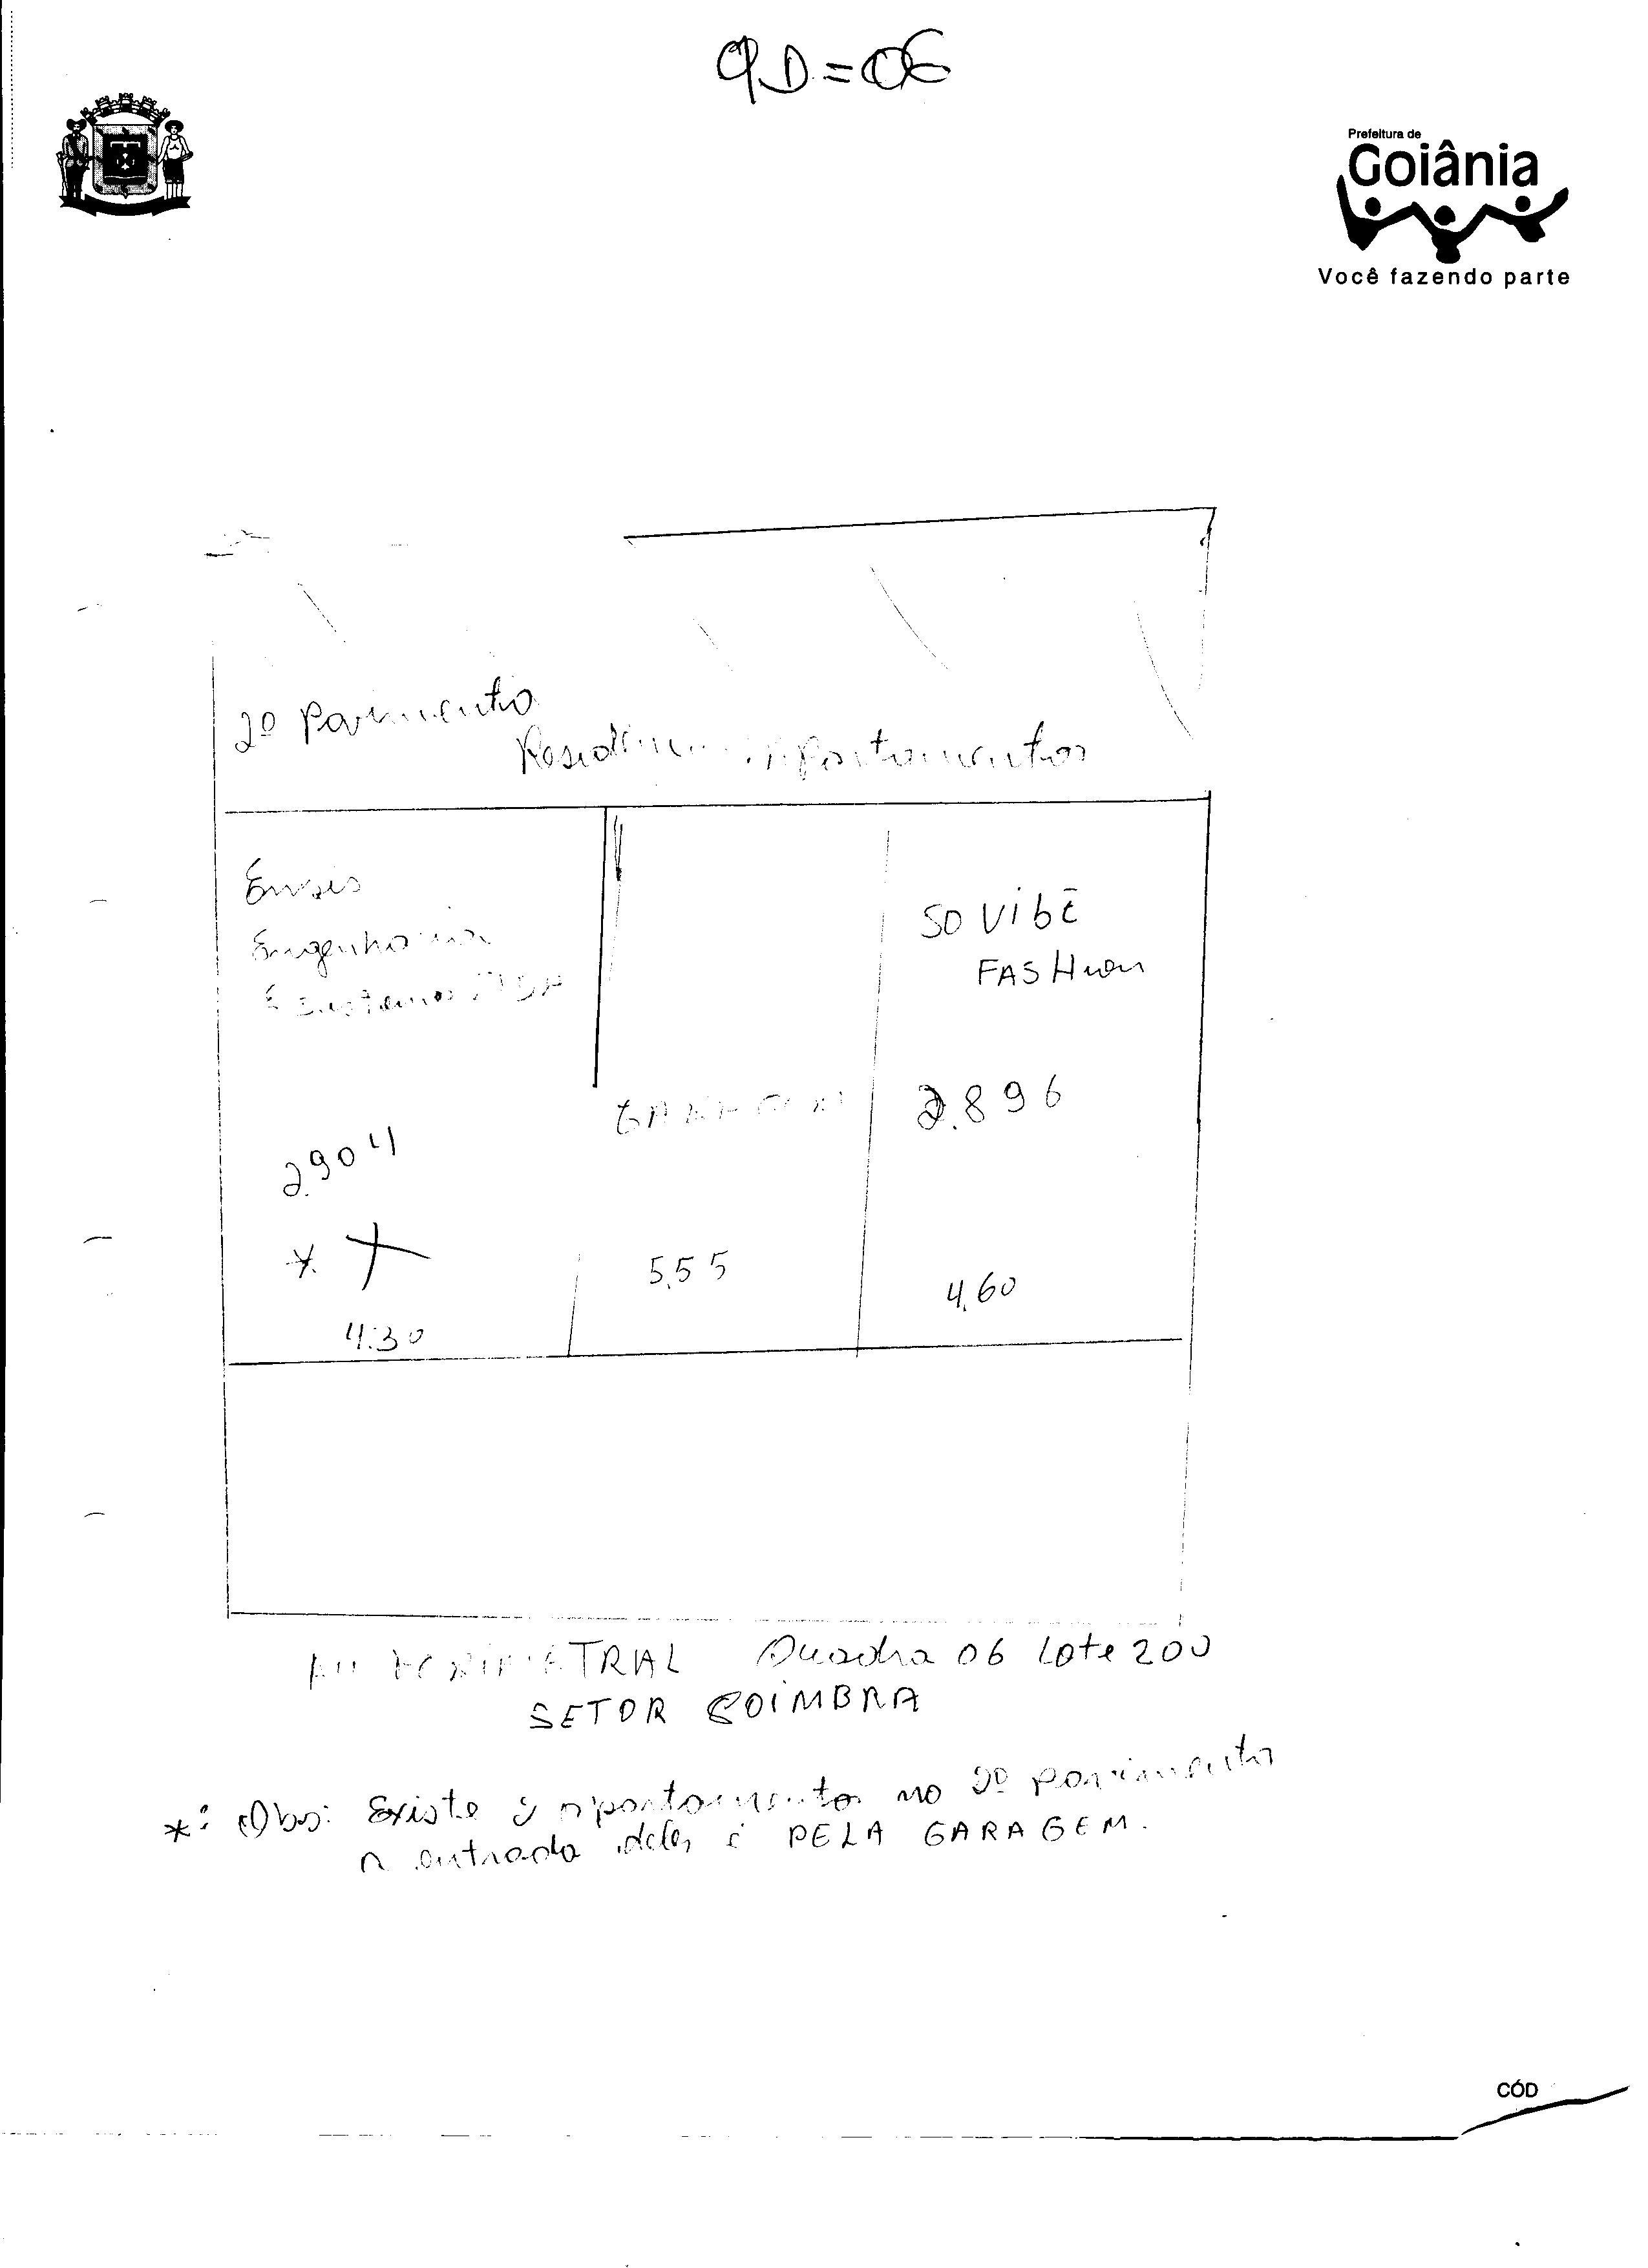 QD=06
Prefeitura de
Goiânia
Você fazendo parte
2º Pavimento
Apartamentos
Engenharia
SO VIBE
FASHion
2.896
2.904
*
5,55
4,60
4.30
TRIAL Quadra 06 Lote 200
SETOR COIMBRA
*: Obs: Existe apartamento no 2º pavimento
a entrada deles é PELA GARAGEM.
CÓD